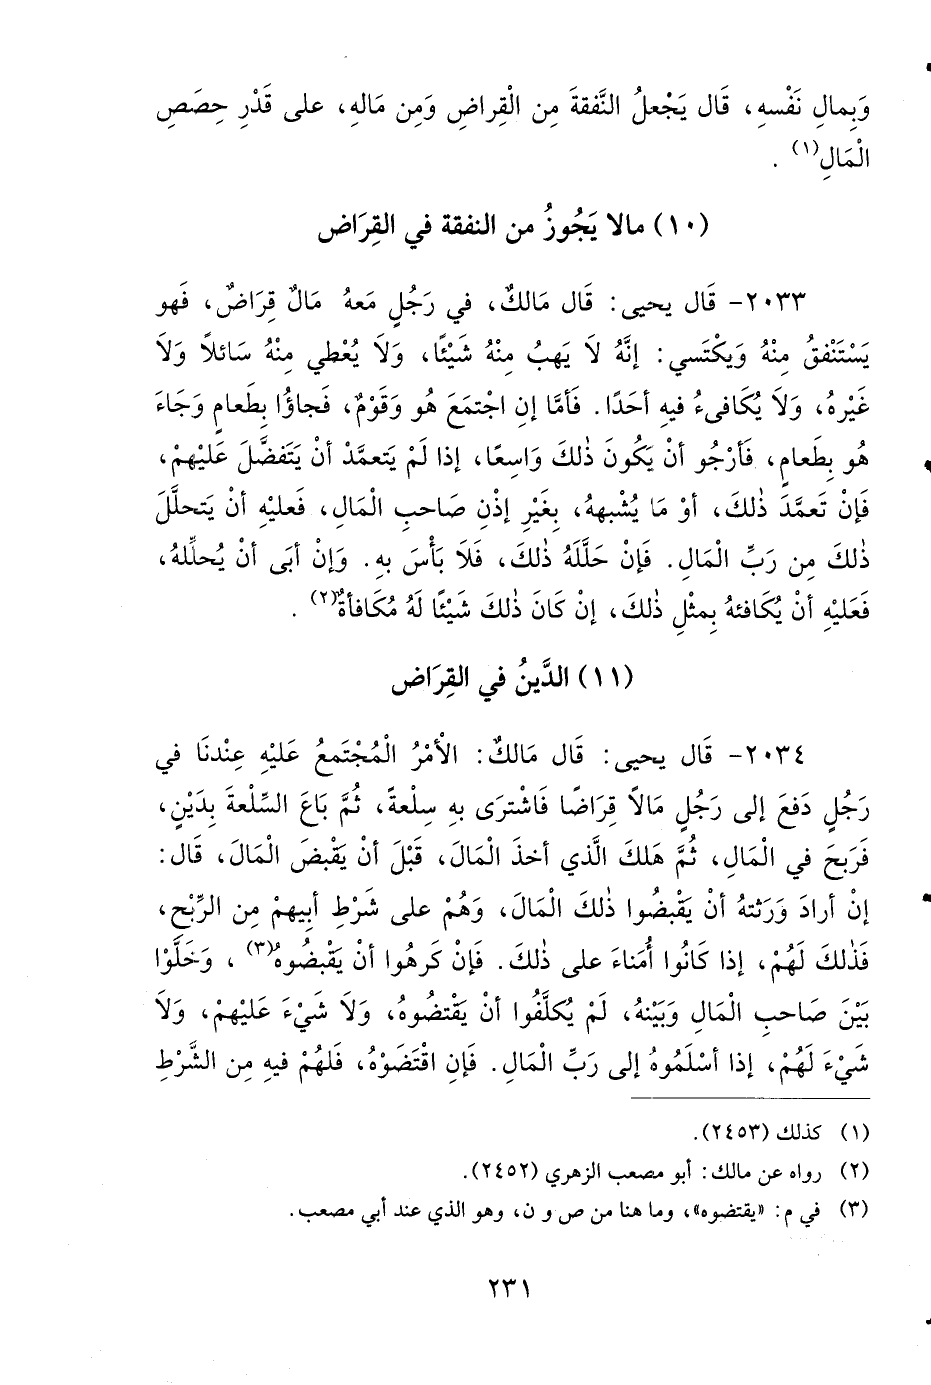 وَبِمالِ نَفْسهِ، قَال يَجْعلُ النَّفقةَ مِن الْقِراضِ وَمِن مَالهِ، على قَدْرِ حِصَصِ
الْمَالِ(١) .
(١٠) مالا يَجُوزُ من النفقة في القِرَاض
٢٠٣٣- قَال يحيى: قَال مَالكٌ، في رَجُلٍ مَعهُ مَالٌ قِرَاضٌ، فَهو
يَسْتَنْفقُ مِنْهُ وَيكْتَسي: إنَّهُ لَا يَهبُ مِنْهُ شَيْئًا، وَلَا يُعْطي مِنْهُ سَائلاً وَلَا
غَيْرهُ، وَلَا يُكَافىءُ فيهِ أحَدًا. فَأمَّا إن اجْتمَعَ هُو وَقَوْمٌ، فَجاؤُا بِطَعامٍ وَجَاءَ
هُو بِطَعامٍ، فَأرْجُو أنْ يَكُونَ ذٰلكَ وَاسِعًا، إذا لَمْ يَتعمَّدْ أنْ يَتَفضَّلَ عَليْهمْ،
فَإنْ تَعمَّدَ ذٰلكَ، أوْ مَا يُشْبههُ، بِغَيْرِ إذْنِ صَاحبِ الْمَالِ، فَعليْهِ أنْ يَتحلَّلَ
ذٰلكَ مِن رَبِّ الْمَالِ. فَإنْ حَلَّلَهُ ذٰلكَ، فَلَا بَأْسَ بهِ. وَإنْ أبَى أنْ يُحلِّلهُ،
فَعَليْهِ أنْ يُكَافئهُ بِمثْلِ ذٰلكَ، إنْ كَانَ ذٰلكَ شَيْئًا لَهُ مُكَافأةٌ(٢) .
(١١) الدَّينُ في القِرَاض
٢٠٣٤- قَال يحيى: قَال مَالكٌ: الْأمْرُ الْمُجْتَمعُ عَليْهِ عِنْدنَا في
رَجُلٍ دَفعَ إلى رَجُلٍ مَالاً قِرَاضًا فَاشْترَى بهِ سِلْعةً، ثُمَّ بَاعَ السِّلْعةَ بِدَيْنٍ،
فَرَبحَ في الْمَالِ، ثُمَّ هَلكَ الَّذي أخذَ الْمَالَ، قَبْلَ أنْ يَقْبضَ الْمَالَ، قَال:
إنْ أرادَ وَرَثتهُ أنْ يَقْبضُوا ذٰلكَ الْمَالَ، وَهُمْ على شَرْطِ أبيهمْ مِن الرِّبْحِ،
فَذٰلكَ لَهُمْ، إذا كَانُوا أُمَناءَ على ذٰلكَ. فَإنْ كَرهُوا أنْ يَقْبضُوهُ(٣) ، وَخَلَّوْا
بَيْنَ صَاحبِ الْمَالِ وَبَيْنهُ، لَمْ يُكلَّفُوا أنْ يَقْتضُوهُ، وَلَا شَيْءَ عَليْهمْ، وَلَا
شَيْءَ لَهُمْ، إذا أسْلَمُوهُ إلى رَبِّ الْمَالِ. فَإنِ اقْتَضَوْهُ، فَلهُمْ فيهِ مِن الشَّرْطِ
(١) كذلك (٢٤٥٣).
(٢) رواه عن مالك: أبو مصعب الزهري (٢٤٥٢).
(٣) في م: «يقتضوه»، وما هنا من ص و ن، وهو الذي عند أبي مصعب.
٢٣١